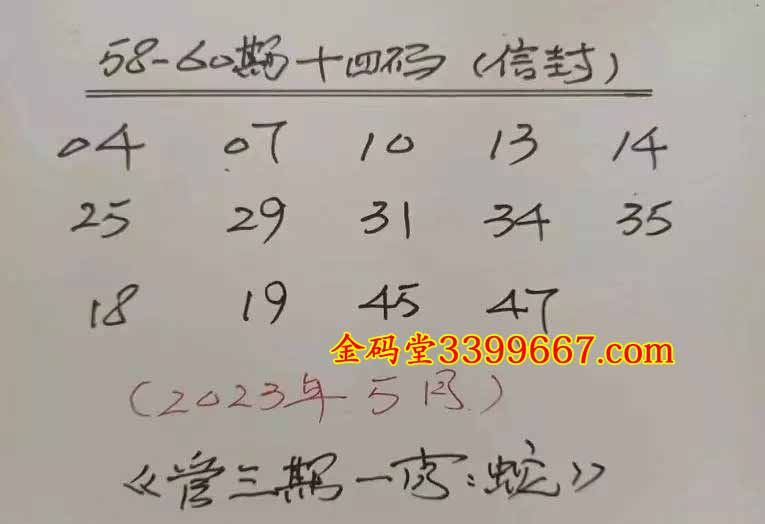 58-60期十四码(信封)
04 07 10 13 14
25 29 31 34 35
18 19 45 47
金码堂3399667.com
(2023年5月)
《管三期一字:蛇》